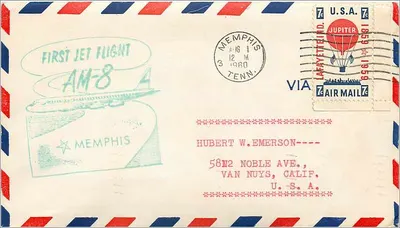 FIRST JET FLIGHT
AM-8
MEMPHIS
MEMPHIS
AUG 1
12 M
1960
TENN.
3
VIA
U.S.A.
7¢
7¢
JUPITER
LAFAYETTE, IND.
1859 1959
7¢ AIR MAIL 7¢
HUBERT W. EMERSON----
5812 NOBLE AVE.,
VAN NUYS, CALIF.
U. S. A.